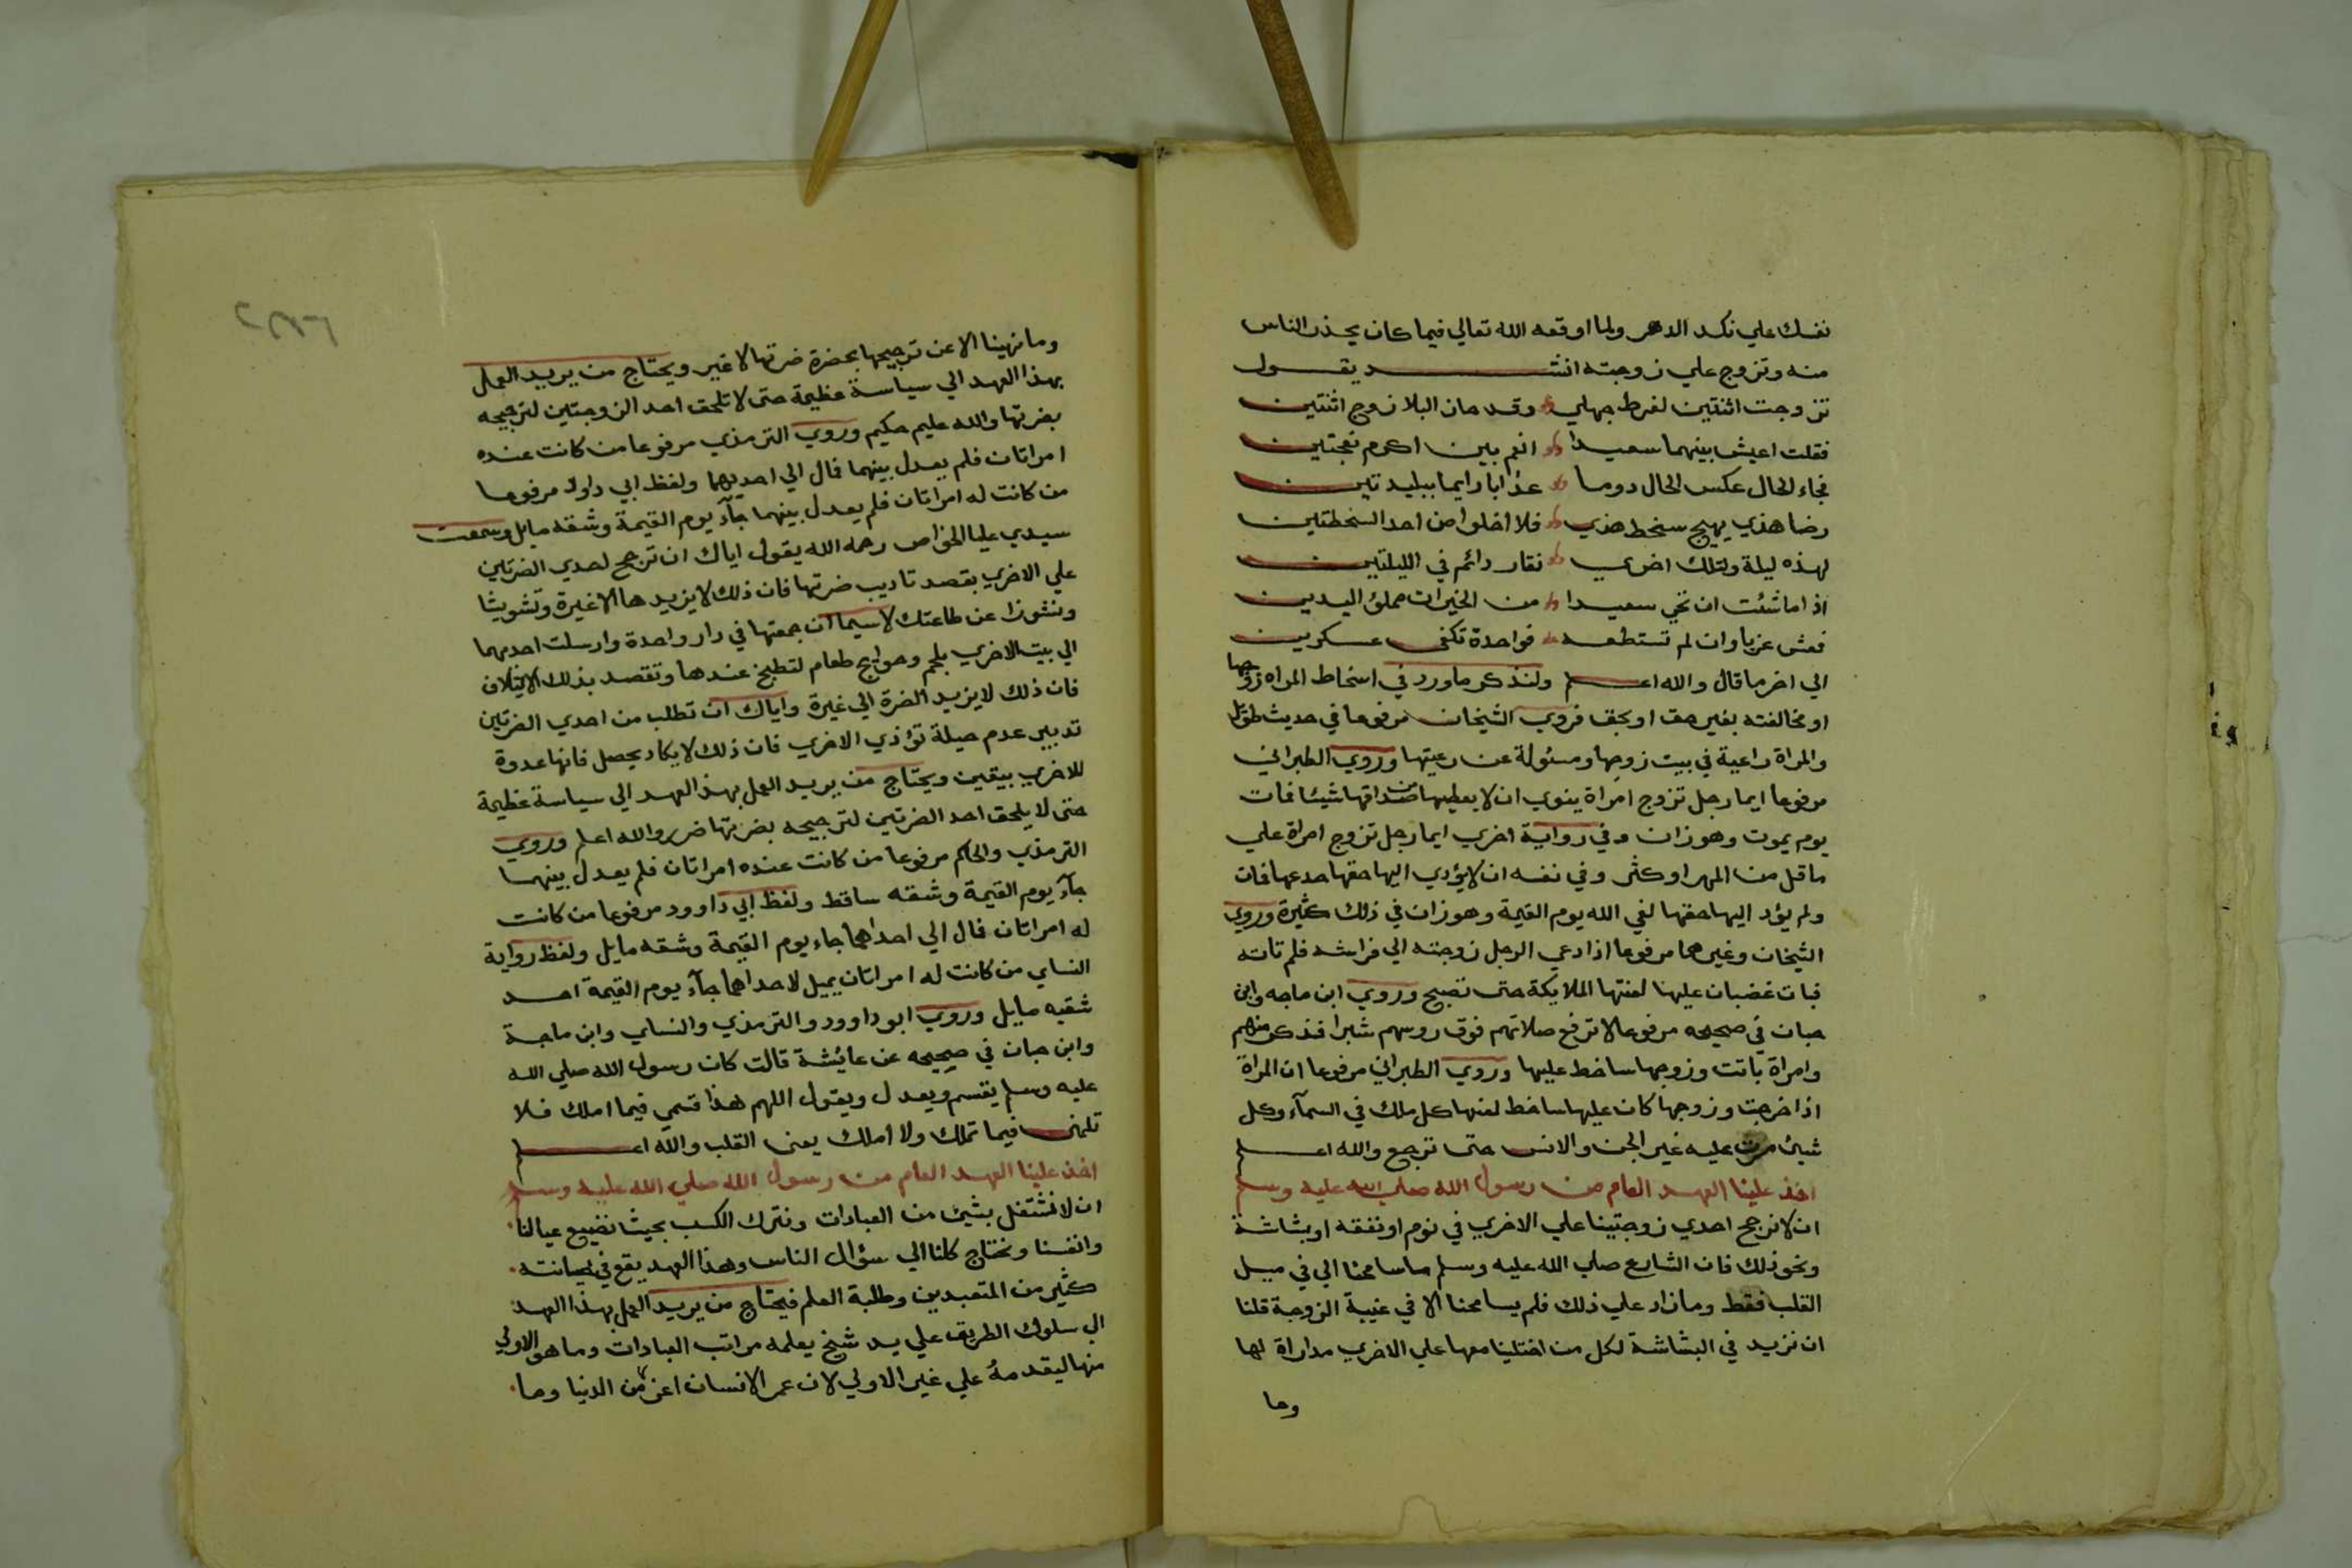 نفسك علي نكد الدهر ولما اوقعه الله تعالي فيما كان يحذر الناس
منه وتزوج علي زوجته انشد يقول
تزوجت اثنتين لفرط جهلي وقد حاز البلا زوج اثنتين
فقلت اعيش بينهما سعيدا انعم بين اكرم نعجتين
فجاء الحال عكس الحال دوما عذابا دايما ببليدتين
رضا هذي يهيج سخط هذي فلا اخلوا من احد السخطتين
لهذه ليلة ولتلك اخري نقار دائم في الليلتين
اذا ما شئت ان تحي سعيدا من الخيرات مملؤ اليدين
فعش عزبا وان لم تستطعه فواحدة تكفي عسكرين
الي اخر ما قال والله اعلم ولنذكر ما ورد في اسخاط المراه زوجها
او مخالفته بغير حق او بحق فروي الشيخان مرفوعا في حديث طويل
والمراة راعية في بيت زوجها ومسئولة عن رعيتها وروي الطبراني
مرفوعا ايما رجل تزوج امراة ينوي ان لا يعطيها من صداقها شيئا فمات
يوم يموت وهو زان وفي رواية اخري ايما رجل تزوج امراة علي
ما قل من المهر او كثر وفي نفسه ان لا يؤدي اليها حقها خدعها فمات
ولم يؤد اليها حقها لقي الله يوم القيمة وهو زان في ذلك كثيرة وروي
الشيخان وغيرهما مرفوعا اذا دعي الرجل زوجته الي فراشه فلم تاته
فبات غضبان عليها لعنتها الملايكة حتى تصبح وروي ابن ماجه وابن
حبان في صحيحه مرفوعا لا ترفع صلاتهم فوق روسهم شبرا فذكر منهم
وامراة باتت وزوجها ساخط عليها وروي الطبراني مرفوعا ان المراة
اذا خرجت وزوجها كان عليها ساخط لعنها كل ملك في السمآء وكل
شيئ مرت عليه غير الجن والانس حتى ترجع والله اعلم
اخذ علينا العهد العام من رسول الله صلي الله عليه وسلم
ان لا نرجح احدي زوجتينا علي الاخري في نوم او نفقة او بشاشة
ونحو ذلك فان الشارع صلي الله عليه وسلم ما سامحنا الي في ميل
القلب فقط وما زاد علي ذلك فلم يسامحنا الا في غيبة الزوجة قلنا
ان نزيد في البشاشة لكل من اختلينا معها علي الاخري مداراة لها
وما
وما نهينا الا عن ترجيحها بحضرة ضرتها لا غير ويحتاج من يريد العمل
بهذا العهد الي سياسة عظيمة حتى لا تلحق احد الزوجتين لترجيحه
بضرتها والله عليم حكيم وروي الترمذي مرفوعا من كانت عنده
امراتان فلم يعدل بينهما فمال الي احديهما ولفظ ابي داود مرفوعا
من كانت له امراتان فلم يعدل بينهما جآء يوم القيمة وشقه مايل وسمعت
سيدي عليا الخواص رحمه الله يقول اياك ان ترجح لحدي الضرتين
علي الاخري بقصد تاديب ضرتها فان ذلك لا يزيدها الا غيرة وتشويشا
ونشوزا عن طاعتك لا سيما ان جمعتها في دار واحدة وارسلت احديهما
الي بيت الاخري بلحم وحوايج طعام لتطبخ عندها وتقصد بذلك الايتلاف
فان ذلك لا يزيد الضرة الي غيرة واياك ان تطلب من احدي الضرتين
تدبير عدم حيلة تؤذي الاخري فان ذلك لا يكاد يحصل فانها عدوة
للاخري بيقين ويحتاج من يريد العمل بهذا العهد الي سياسة عظيمة
حتى لا يلحق احد الضرتين لترجيحه بضرتها ضرر والله اعلم وروي
الترمذي والحاكم مرفوعا من كانت عنده امراتان فلم يعدل بينهما
جآء يوم القيمة وشقه ساقط ولفظ ابي داوود مرفوعا من كانت
له امراتان فمال الي احداهما جاء يوم القيمة وشقه مايل ولفظ رواية
النساي من كانت له امراتان يميل لاحداهما جآء يوم القيمة احد
شقيه مايل وروي ابو داوود والترمذي والنساي وابن ماجة
وابن حبان في صحيحه عن عائشة قالت كان رسول الله صلي الله
عليه وسلم يقسم ويعدل ويقول اللهم هذا قسمي فيما املك فلا
تلمني فيما تملك ولا املك يعني القلب والله اعلم
اخذ علينا العهد العام من رسول الله صلي الله عليه وسلم
ان لا نشتغل بشيئ من العبادات ونترك الكسب بحيث نضيع عيالنا
وانفسنا ونحتاج كلنا الي سؤال الناس وهذا العهد يقع في خيانته
كثير من المتعبدين وطلبة العلم فيحتاج من يريد العمل بهذا العهد
الي سلوك الطريق علي يد شيخ يعلمه مراتب العبادات وما هو الاولي
منها ليقدمه علي غير الاولي لان عمر الانسان اعز من الدنيا وما